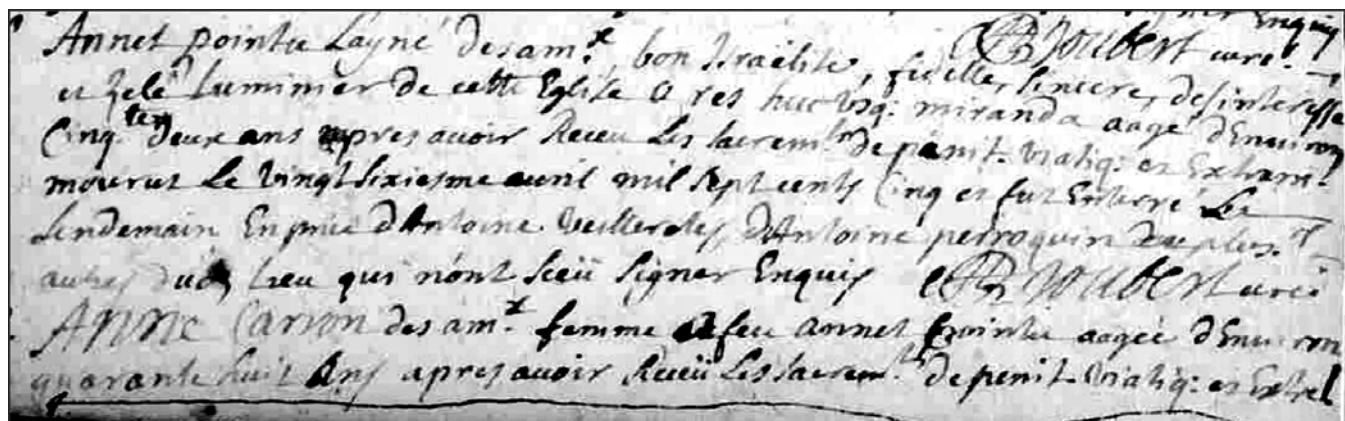 signer Enquis
Annet pointu Layné desam.t bon Israëlite, fidelle, sincere, desinteressé Joubert curé
et zelé Luminier de cette Eglise a res huc usq: miranda aagé d'Environ
Cinq.te deux ans apres avoir Receu Les sacrem.ts de pénit. viatiq: et Extrem.
mourut Le vingt sixiesme avril mil sept cents Cinq et fut Enterré Le
Lendemain En pnce d'Antoine d'Antoine perroquin & de plus.rs
autres dud. Lieu qui n'ont sceü signer Enquis Joubert curé
ANNE Carion desam.t femme a feu annet pointu aagée d'Environ
quarante huit Ans apres avoir Receü Les sacrem.ts de penit. viatiq: et Extre